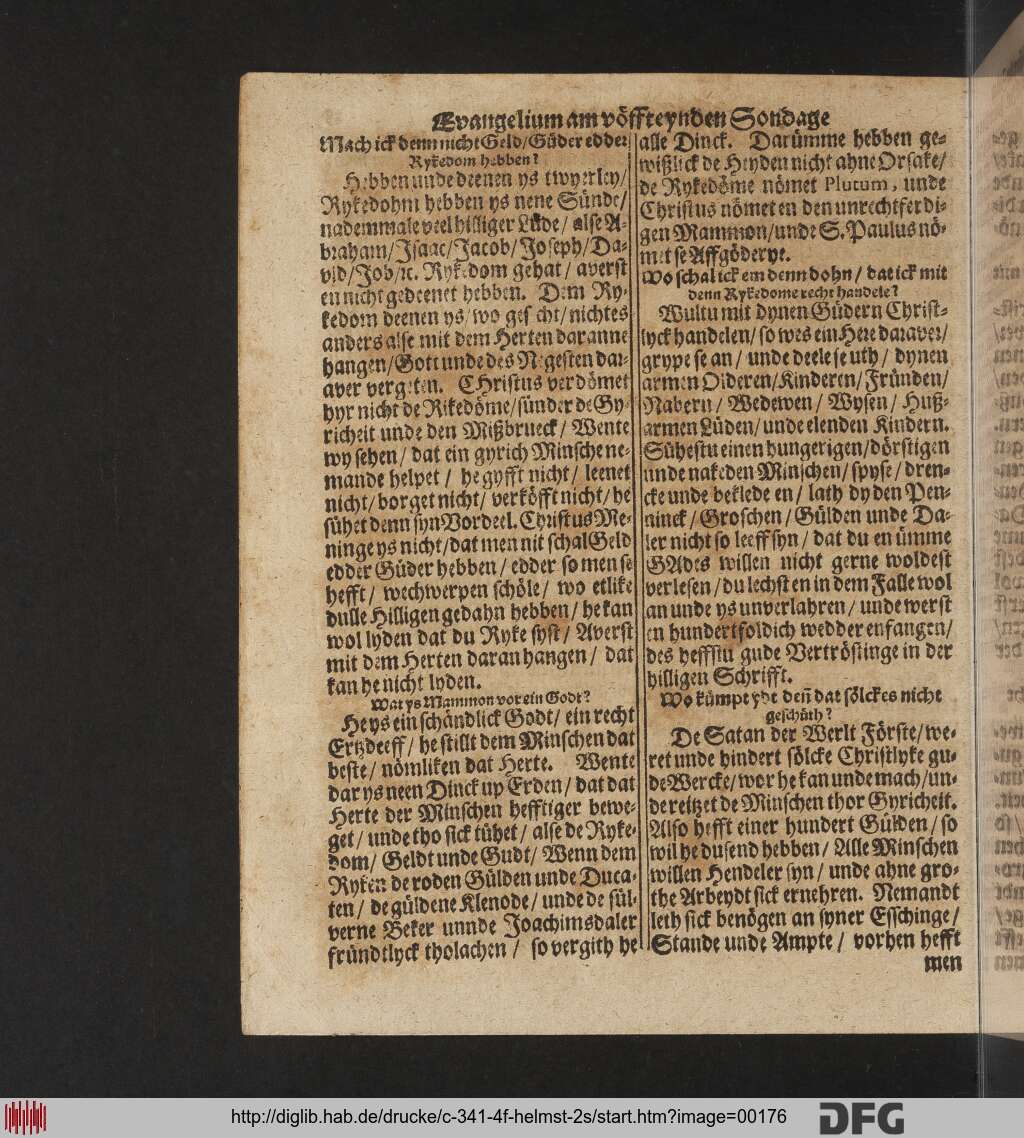 Evangelium am vöffteynden Sondage
Mach ick denn nicht Geld/ Güder edder
Rykedom hebben?
Hebben unde deenen ys twyerley/
Rykedohm hebben ys nene Sünde/
nademmale veel hilliger Lüde/ alse A-
braham/ Jsaac/ Jacob/ Joseph/ Da-
vid/ Job/ ꝛc. Rykedom gehat/ averst
en nicht gedeenet hebben. Dem Ry-
kedom deenen ys/ wo gesecht/ nichtes
anders alse mit dem Herten daranne
hangen/ Gott unde des Negesten dar-
aver vergeten. CHristus verdömet
hyr nicht de Rikedöme/ sünder de Gy-
richeit unde den Mißbrueck/ Wente
wy sehen/ dat ein gyrich Minsche ne-
mande helpet/ he gyfft nicht/ leenet
nicht/ borget nicht/ verköfft nicht/ he
sühet denn syn Vordeel. Christus Me-
ninge ys nicht/ dat men nit schal Geld
edder Güder hebben/ edder so men se
hefft/ wechwerpen schöle/ wo etlike
dulle Hilligen gedahn hebben/ he kan
wol lyden dat du Ryke syst/ Averst
mit dem Herten daran hangen/ dat
kan he nicht lyden.
Wat ys Mammon vor ein Godt?
He ys ein schändlick Godt/ ein recht
Ertzdeeff/ he stillt dem Minschen dat
beste/ nömliken dat Herte. Wente
dar ys neen Dinck up Erden/ dat dat
Herte der Minschen hefftiger bewe-
get/ unde tho sick tühet/ alse de Ryke-
dom/ Geldt unde Gudt/ Wenn dem
Ryken de roden Gülden unde Duca-
ten/ de güldene Klenode/ unde de sül-
verne Beker unnde Joachimsdaler
fründtlyck tholachen/ so vergith he
alle Dinck. Darümme hebben ge-
wißlick de Heyden nicht ahne Orsake/
de Rykedöme nömet Plutum, unde
Christus nömet en den unrechtferdi-
gen Mammon/ unde S. Paulus nö-
met se Affgöderye.
Wo schal ick em denn dohn/ dat ick mit
denn Rykedome recht handele?
Wultu mit dynen Güdern Christ-
lyck handelen/ so wes ein Here daraver/
grype se an/ unde deele se uth/ dynen
armen Olderen/ Kinderen/ Fründen/
Nabern/ Wedewen/ Wysen/ Huß-
armen Lüden/ unde elenden Kindern.
Sühestu einen hungerigen/ dörstigen
unde nakeden Minschen/ spyse/ dren-
cke unde beklede en/ lath dy den Pen-
ninck/ Groschen/ Gülden unde Da-
ler nicht so leeff syn/ dat du en ümme
GAdes willen nicht gerne woldest
verlesen/ du lechst en in dem Falle wol
an unde ys unverlahren/ unde werst
en hundertfoldich wedder enfangen/
des heffstu gude Vertröstinge in der
hilligen Schrifft.
Wo kümpt ydt deñ dat sölckes nicht
geschüth?
De Satan der Werlt Förste/ we-
ret unde hindert sölcke Christlyke gu-
de Wercke/ wor he kan unde mach/ un-
de reitzet de Minschen thor Gyricheit.
Also hefft einer hundert Gülden/ so
wil he dusend hebben/ Alle Minschen
willen Hendeler syn/ unde ahne gro-
the Arbeydt sick ernehren. Nemandt
leth sick benögen an syner Esschinge/
Stande unde Ampte/ vorhen hefft
men
http://diglib.hab.de/drucke/c-341-4f-helmst-2s/start.htm?image=00176
DFG